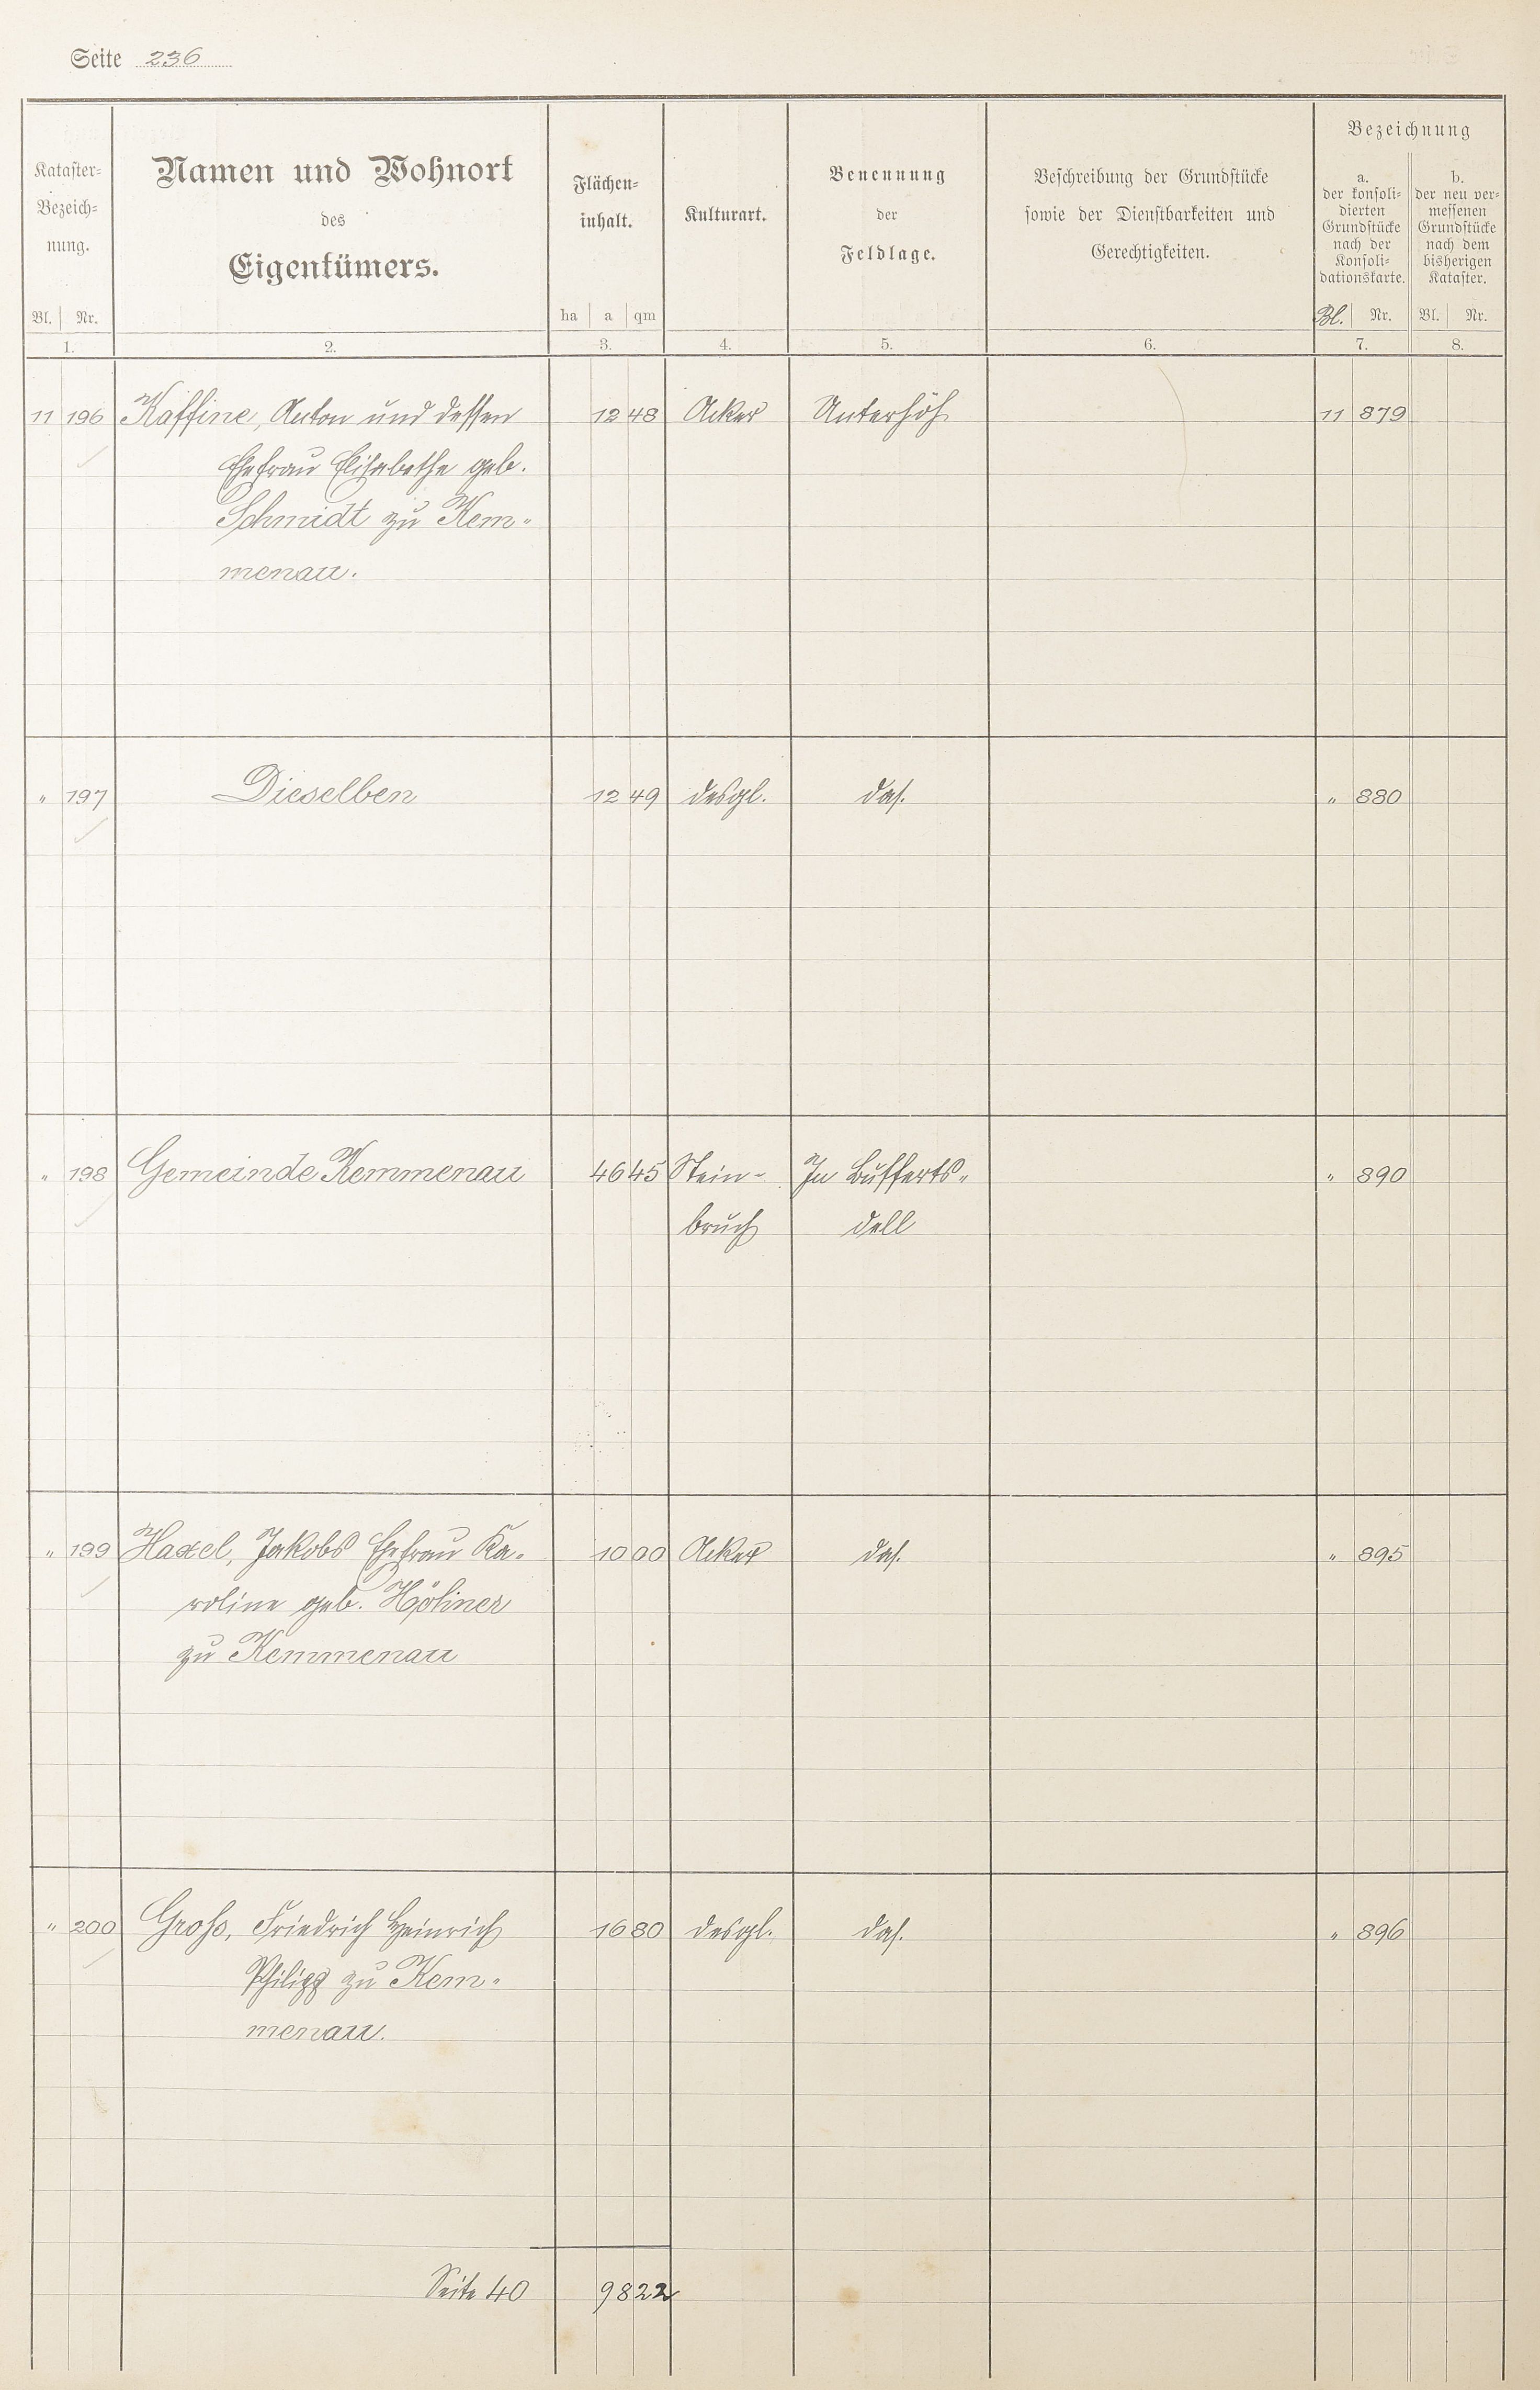 Seite 236
Kataster-
Bezeich-
nung.
Bl. Nr.
1.
Namen und Wohnort
des
Eigentümers.
2.
Flächen-
inhalt.
ha a qm
3.
Kulturart.
4.
Benennung
der
Feldlage.
5.
Beschreibung der Grundstücke
sowie der Dienstbarkeiten und
Gerechtigkeiten.
6.
Bezeichnung
a.
der konsoli-
dierten
Grundstücke
nach der
Konsoli-
dationskarte.
Bl. Nr.
7.
b.
der neu ver-
messenen
Grundstücke
nach dem
bisherigen
Kataster.
Bl. Nr.
8.
11 196 Kaffine, Anton und dessen 12 48 Acker Unterhöh 11 879
Ehefrau Elisabethe geb.
Schmidt zu Kem-
menau.
" 197 Dieselben 12 49 desgl. das. " 880
" 198 Gemeinde Kemmenau 46 45 Stein- In Bufferts- " 890
bruch dell
" 199 Haxel, Jakobs Ehefrau Ka- 10 00 Acker das. " 895
roline geb. Höhner
zu Kemmenau
" 200 Groß, Friedrich Heinrich 16 80 desgl. das. " 896
Philipp zu Kem-
menau.
Seite 40 98 22